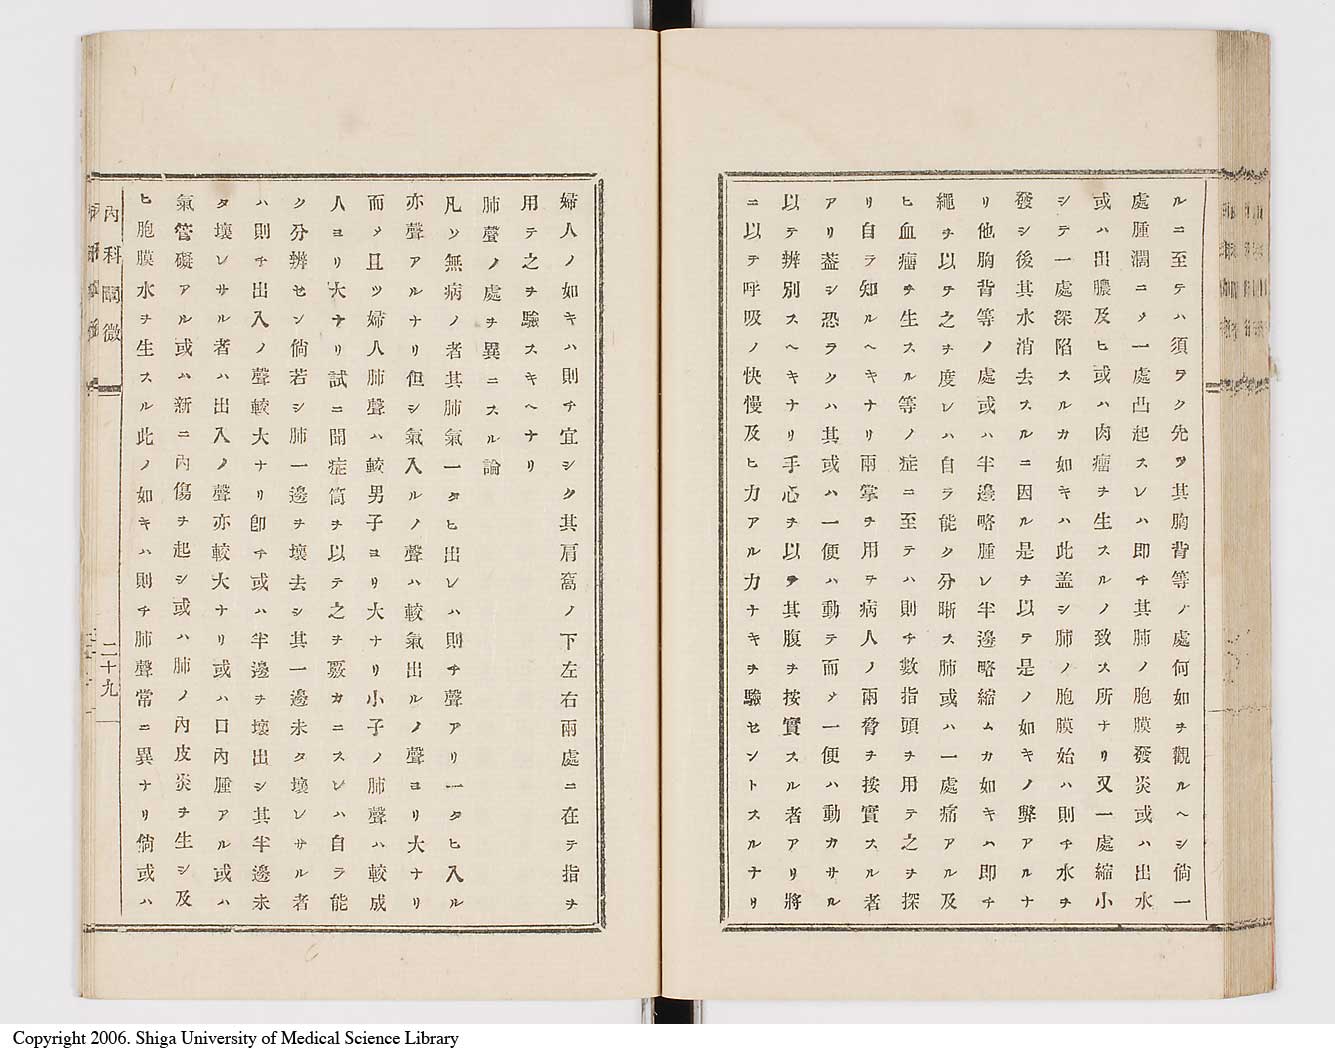 ルニ至テハ須ヲク先ツ其胸背等ノ處何如ヲ觀ルヘシ倘一
處腫濶ニメ一處凸起スレハ即チ其肺ノ胞膜發炎或ハ出水
或ハ出膿及ヒ或ハ肉瘤ヲ生スルノ致ス所ナリ又一處縮小
シテ一處深陷スルカ如キハ此盖シ肺ノ胞膜始ハ則チ水ヲ
發シ後其水消去スルニ因ル是ヲ以テ是ノ如キノ弊アルナ
リ他胸背等ノ處或ハ半邊略腫レ半邊略縮ムカ如キハ即チ
繩ヲ以テ之ヲ度レハ自ラ能ク分晰ス肺或ハ一處痛アル及
ヒ血瘤ヲ生スル等ノ症ニ至テハ則チ數指頭ヲ用テ之ヲ探
リ自ラ知ルヘキナリ兩掌ヲ用テ病人ノ兩脅ヲ按實スル者
アリ葢シ恐ラクハ其或ハ一便ハ動テ而メ一便ハ動カサル
以テ辨別スヘキナリ手心ヲ以テ其腹ヲ按實スル者アリ將
ニ以テ呼吸ノ快慢及ヒ力アル力ナキヲ驗セントスルナリ
婦人ノ如キハ則チ宜シク其肩窩ノ下左右兩處ニ在テ指ヲ
用テ之ヲ驗スキヘナリ
肺聲ノ處ヲ異ニスル論
凡ソ無病ノ者其肺氣一タヒ出レハ則チ聲アリ一タヒ入ル
亦聲アルナリ但シ氣入ルノ聲ハ較氣出ルノ聲ヨリ大ナリ
而メ且ツ婦人肺聲ハ較男子ヨリ大ナリ小子ノ肺聲ハ較成
人ヨリ大ナリ試ニ聞症筒ヲ以テ之ヲ覈カニスレハ自ラ能
ク分辨セン倘若シ肺一邊ヲ壞去シ其一邊未タ壞レサル者
ハ則チ出入ノ聲較大ナリ卽チ或ハ半邊ヲ壞出シ其半邊未
タ壞レサル者ハ出入ノ聲亦較大ナリ或ハ口內腫アル或ハ
氣管礙アル或ハ新ニ內傷ヲ起シ或ハ肺ノ內皮炎ヲ生シ及
ヒ胞膜水ヲ生スル此ノ如キハ則チ肺聲常ニ異ナリ倘或ハ
內科闡微
二十九
Copyright 2006. Shiga University of Medical Science Library